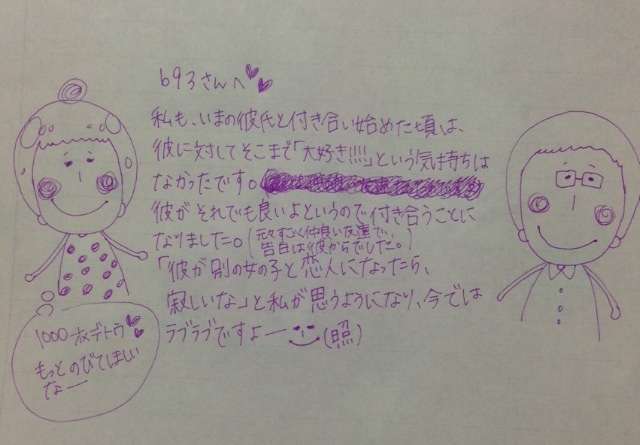 693さんへ
私も、いまの彼氏と付き合い始めた頃は、
彼に対してそこまで「大好き!!!!」という気持ちは
なかったです。
彼がそれでも良いよというので付き合うことに
なりました。(元々すごく仲良い友達で、
告白は彼からでした。)
「彼が別の女の子と恋人になったら、
寂しいな」と私が思うようになり、今では
ラブラブですよー(照)
1000オメデトウ
もっとのびてほしい
なー